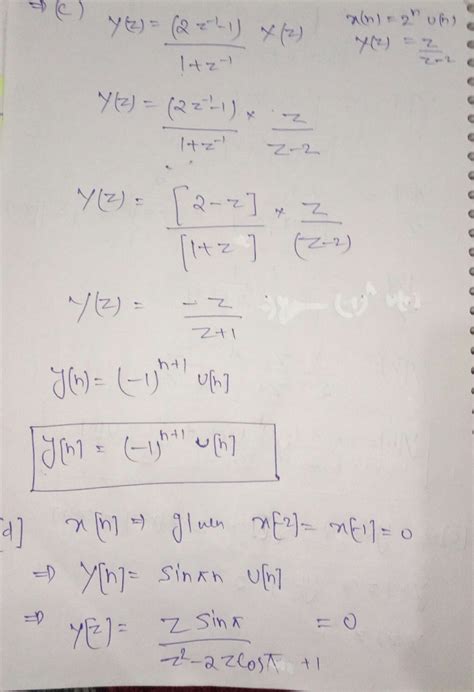 ⇒ (c) Y(z) = (2z⁻¹-1) / 1+z⁻¹ X(z)
x(n) = 2ⁿ u(n)
Y(z) = z / z-2
Y(z) = (2z⁻¹-1) / 1+z⁻¹ × z / z-2
Y(z) = [2-z] / [1+z] × z / (z-2)
Y(z) = -z / z+1
y(n) = (-1)ⁿ⁺¹ u[n]
y[n] = (-1)ⁿ⁺¹ u[n]
[d] x[n] ⇒ given x[-2] = x[-1] = 0
⇒ y[n] = sinπn u[n]
⇒ Y[z] = z sinπ / z²-2z cosπ +1 = 0